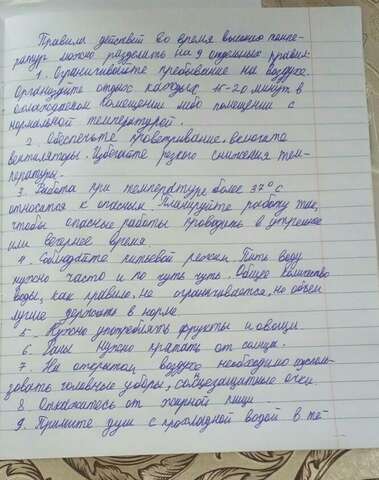 Правила действий во время высоких темпе-
ратур можно разделить на 9 отдельных правил:
1. Ограничивайте пребывание на воздухе.
Организуйте отдых каждых 15-20 минут в
охлаждаемом помещении либо помещении с
нормальной температурой.
2. Обеспечьте проветривание. включите
вентиляторы. Избегайте резкого снижения тем-
пературы.
3. Работа при температуре более 37°с
относится к опасным. Планируйте работу так,
чтобы опасные работы проводить в утреннее
или вечернее время
4. Соблюдайте питьевой режим. Пить воду
нужно часто и по чуть чуть. Общее количество
воды, как правило, не ограничивается, но объём
лучше держать в норме.
5. Нужно употреблять фрукты и овощи
6. Раны нужно прятать от солнца.
7. На открытом воздухе необходимо исполь-
зовать головные уборы, солнцезащитные очки.
8. Откажитесь от жирной пищи.
9. Примите душ с прохладной водой в те-